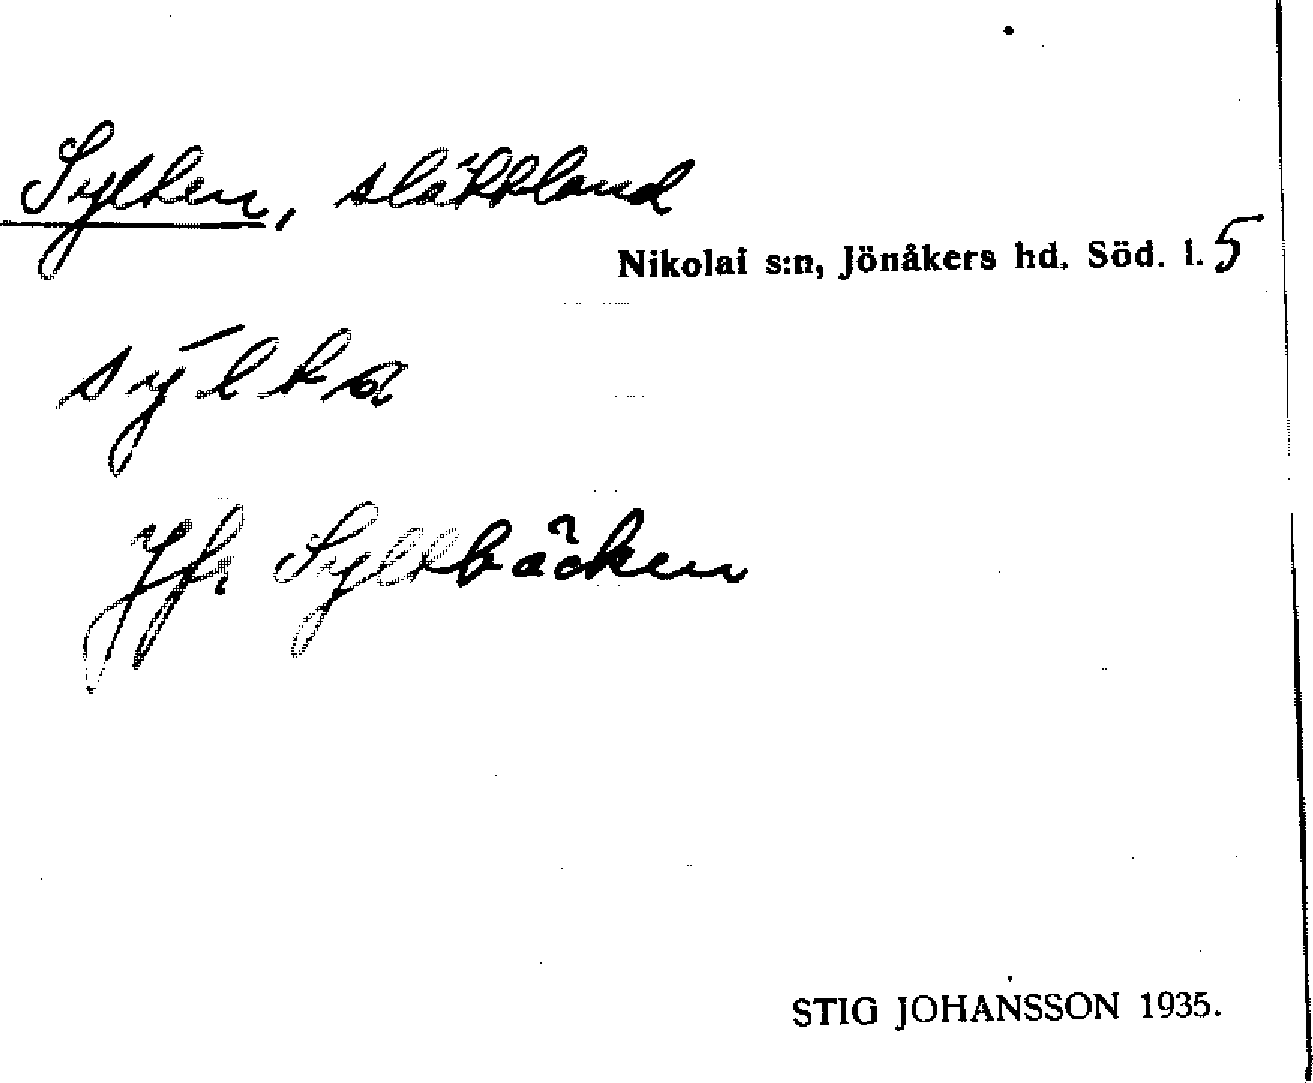 Sylken, släkkland
Nikolai s:n, Jönåkers hd. Söd. l. 5
sy̅lka
Jfr Sylkbäcken
STIG JOHANSSON 1935.